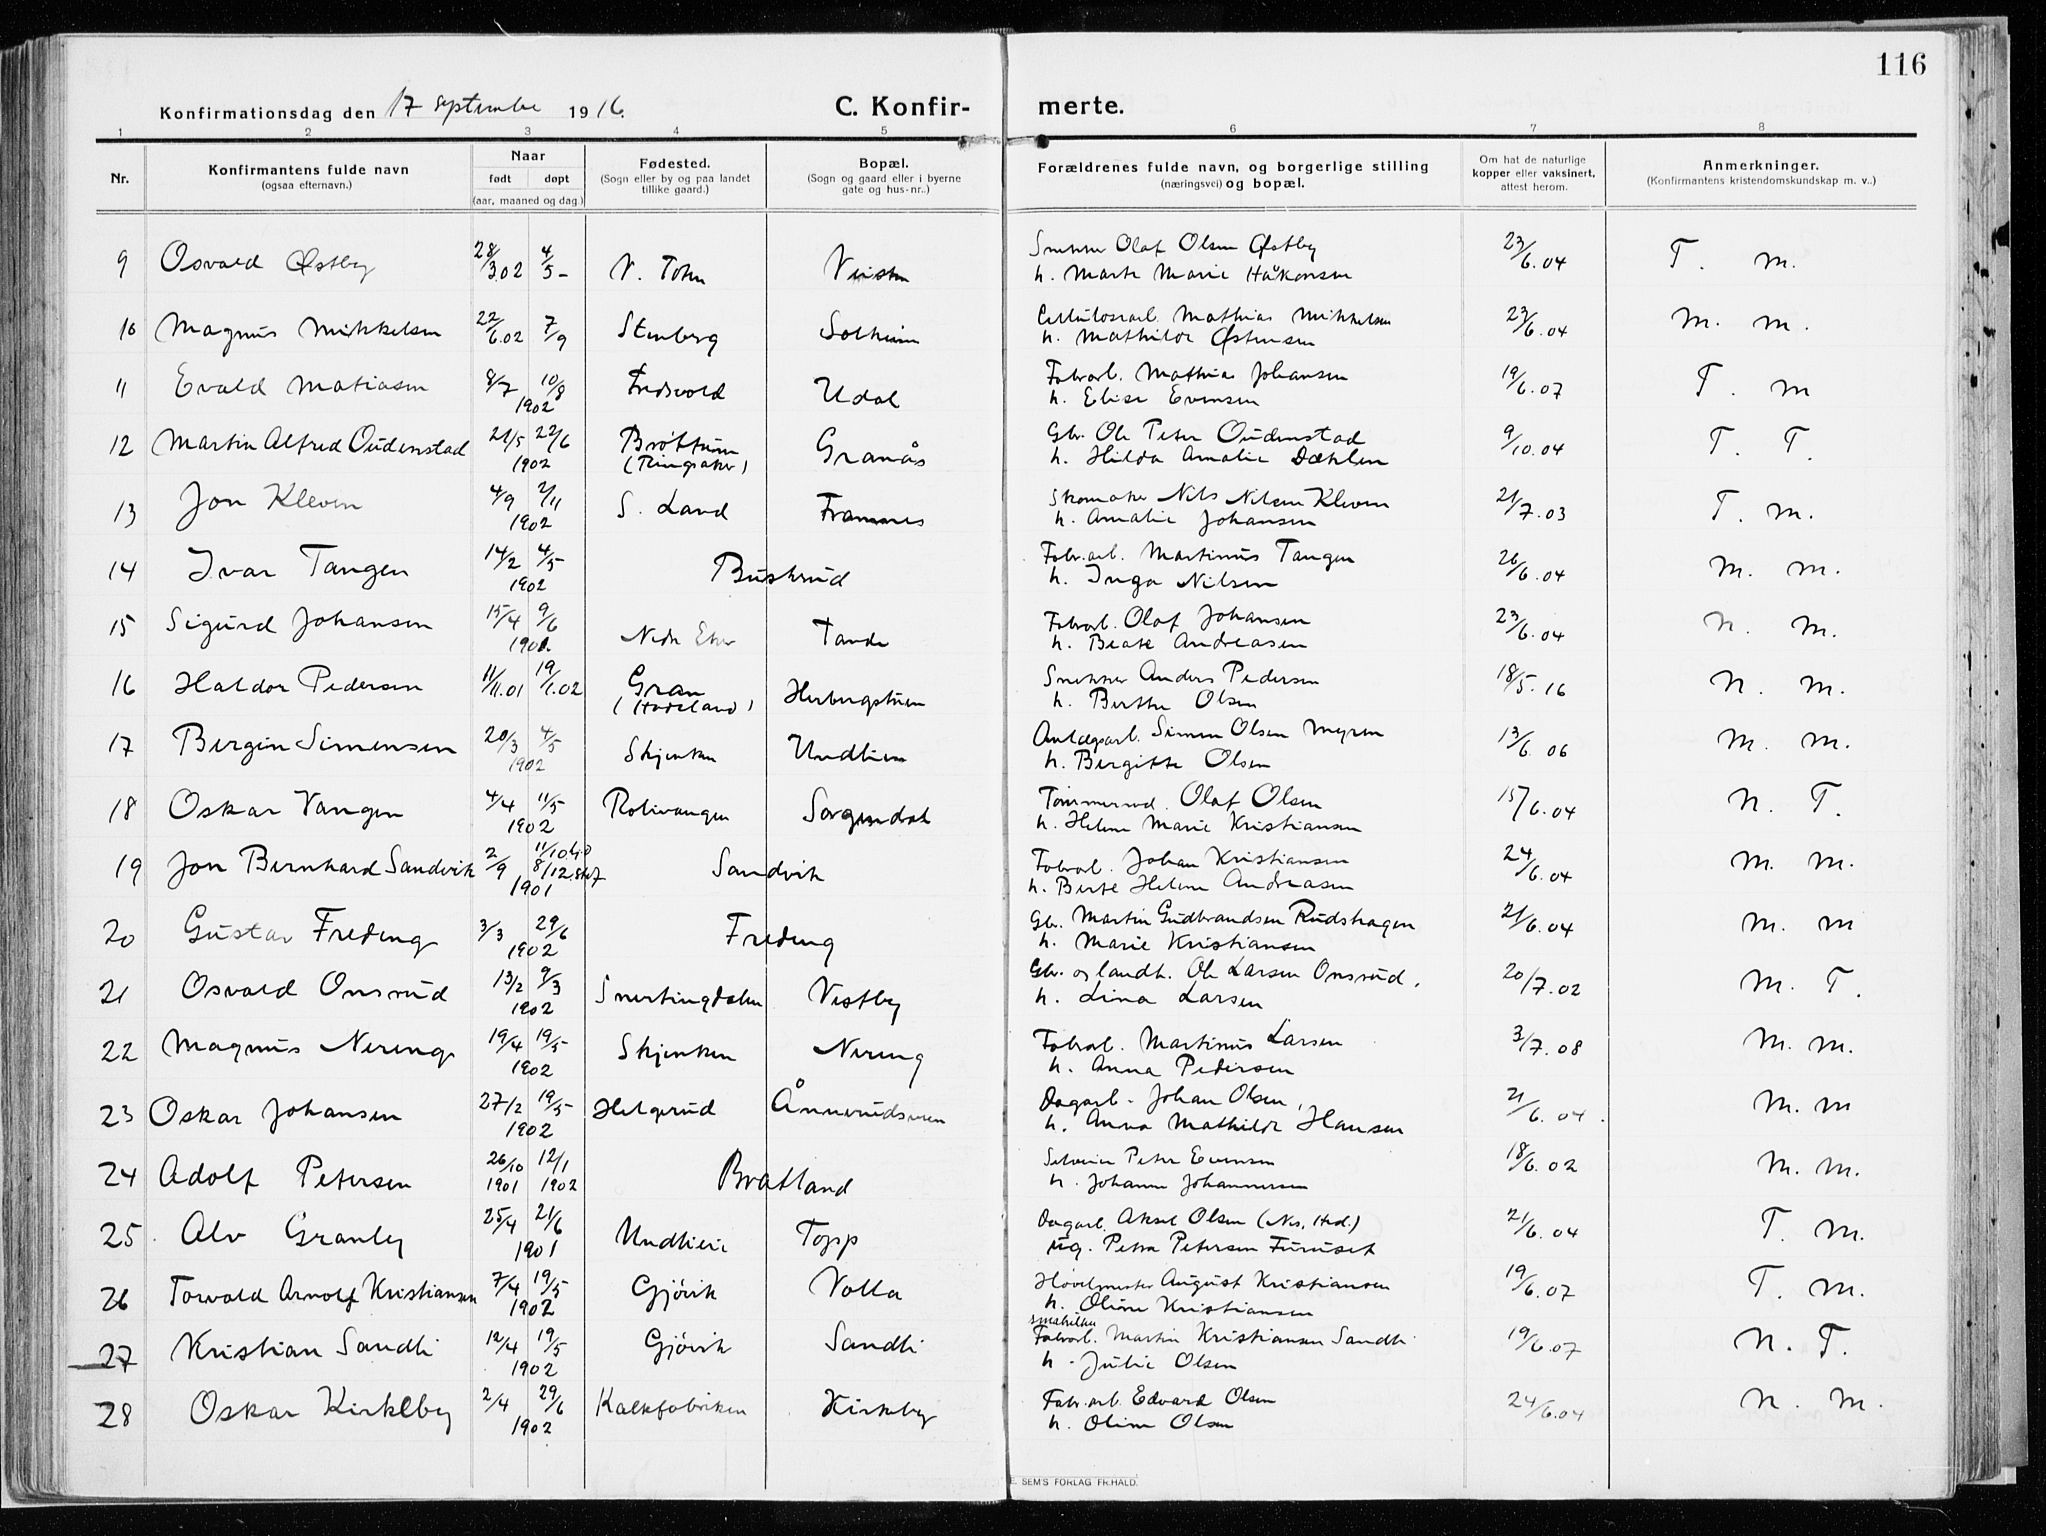 116
Konfirmationsdag den 17 September 1916.
C. Konfirmerte.
1 2 3 4 5 6 7 8
Nr.
Konfirmantens fulde navn
(ogsaa efternavn.)
Naar
født døpt
(aar, maaned og dag.)
Fødested.
(Sogn eller by og paa landet
tillike gaard.)
Bopæl.
(Sogn og gaard eller i byerne
gate og hus-nr..)
Forældrenes fulde navn, og borgerlige stilling
(næringsvei) og bopæl.
Om hat de naturlige
kopper eller vaksinert,
attest herom.
Anmerkninger.
(Konfirmantens kristendomskundskap m. v..)
9 Osvald Østby 28/3.02 4/5- V. Toten Snekker Olaf Olsen Østby 23/6.04 T. m.
h. Marte Marie Håkonsen
10 Magnus Mikkelsen 22/6.02 7/9 Stenberg Solheim Cellulosearb. Mathias Mikkelsen 23/6.04 m. m.
h. Mathilde Østensen
11 Evald Matiasen 8/7 10/8 Fredsvold Udal Fabrarb. Mathias Johansen 19/6.07 T. m
1902 h. Elise Evensen
12 Martin Alfred Oudenstad 21/5 22/6 Brøttum Granås Gbr. Ole Peter Oudenstad 9/10.04 T. T.
1902 (Ringsaker) h. Hilda Amalie Dæhlen
13 Jon Kleven 4/9 2/11 S. Land Framnes Skomaker Nils Nilsen Kleven 21/7.03 T. m.
1902 h. Amalie Johansen
14 Ivar Tangen 14/2 4/5 Buskrud Fabr.arb. Martinus Tangen 26/6.04 m. m.
1902 h. Inga Nilsen
15 Sigurd Johansen 15/4 9/6 Nedr Eker Tande Fabrarb. Olaf Johansen 23/6.04 n. m.
h. Beate Andreasen
16 Haldor Pedersen 11/11.01 19/1.02 Gran Herbergstuen Snekker Anders Pedersen 18/5.16 n. m.
(Hadeland) h. Berthe Olsen
17 Bergin Simensen 20/3 4/5 Skjerken Undheim Anlægsarb. Simen Olsen Myren 13/6.06 m. m.
1902 h. Bergitte Olsen
18 Oskar Vangen 4/4 11/5 Rolivangen Sorgendal Olaf Olsen 15/6.04 n. T.
1902 h. Helene Marie Kristiansen
19 Jon Bernhard Sandvik 2/9 11/10 8/12 Sandvik Fabrarb. Johan Kristiansen 24/6.04 m. m.
1901 h. Berte Helene Andreasen
20 Gustav Freding 3/3 29/6 Freding Gbr. Martin Gudbrandsen Rudshagen 21/6.04 m. m
1902 h. Marie Kristiansen
21 Osvald Onsrud 13/2 9/3 Snertingdalen Vestby Gbr. og landh. Ole Larsen Onsrud, 20/7.02 m. T.
1902 h. Lina Larsen
22 Magnus Nereng 19/4 19/5 Skjerken Nereng Fabrarb. Martinus Larsen 3/7.08 m. m.
1902 h. Anna Pedersen
23 Oskar Johansen 27/2 19/5 Helgerud Ånnerudsveen Dagarb. Johan Olsen, 21/6.04. m. m
1902 h. Anna Mathilde Hansen
24 Adolf Petersen 26/10 12/1 Bratland Peter Evensen 18/6.02 m. m.
1901 1902 h. Johanne Johannesen
25. Alv Granley 25/4 21/6 Undheim Topp Dagarb. Aksel Olsen (Nes, Hed.) 21/6.04 T. m.
1901 ug. Petra Petersen Furuset
26 Torvald Arnolf Kristiansen 7/4 19/5 Gjøvik Volla Høvelmester August Kristiansen 19/6.07 T. m.
1902 h. Oline Kristiansen
27 Kristian Sandli 12/4 19/5 Gjøvik Sandli Fabrarb. Martin Kristiansen Sandli 19/6.07 n. T.
1902 h. Julie Olsen
28 Oskar Kirkeby 2/4 29/6 Kalkfabriken Kirkeby Fabr.arb. Edvard Olsen 24/6.04 n. m.
1902 h. Oline Olsen
E. SEM'S FORLAG FR.HALD.